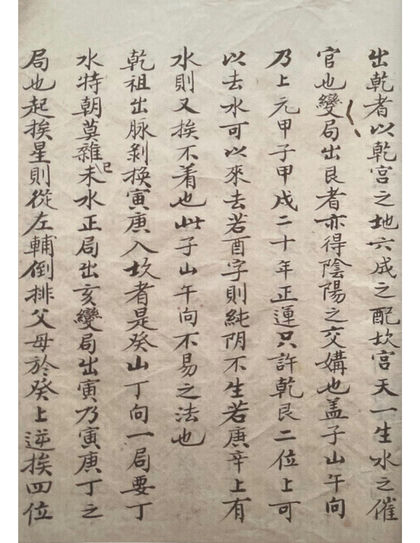 出乾者以乾宮之地六成之配坎宮天一生水之催
官也變局出艮者亦得陰陽之交媾也蓋子山午向
乃上元甲子甲戌二十年正運只許乾艮二位上可
以去水可以來去若酉字則純阴不生若庚辛上有
水則又挨不着也此子山午向不易之法也
乾祖出脉剝換寅庚入坎者是癸山丁向一局要丁
水特朝莫雜未巳水正局出亥變局出寅乃寅庚丁之
局也起挨星則從左輔倒排父母於癸上逆挨四位